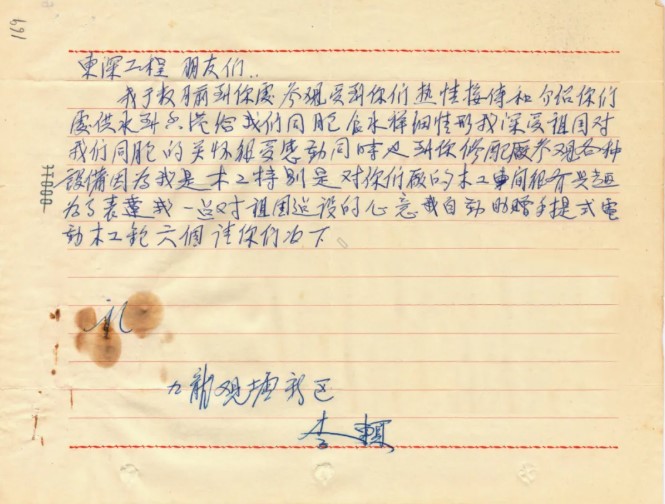 169
東深工程 朋友们..
我于数月前到你處参观受到你们热情接待和介绍你们
處供水到香港给我们同胞食水祥细情形我深受祖囯对
我们同胞的关怀很受感动同時也到你修配廠参观各种
設俻因为我是木工特别是对你们廠的木工車间很有兴趣
为了表達我一点对祖囯建設的心意我自动的赠手提式電
動木工鉋六個请你们收下
礼
九龍观塘新区
李